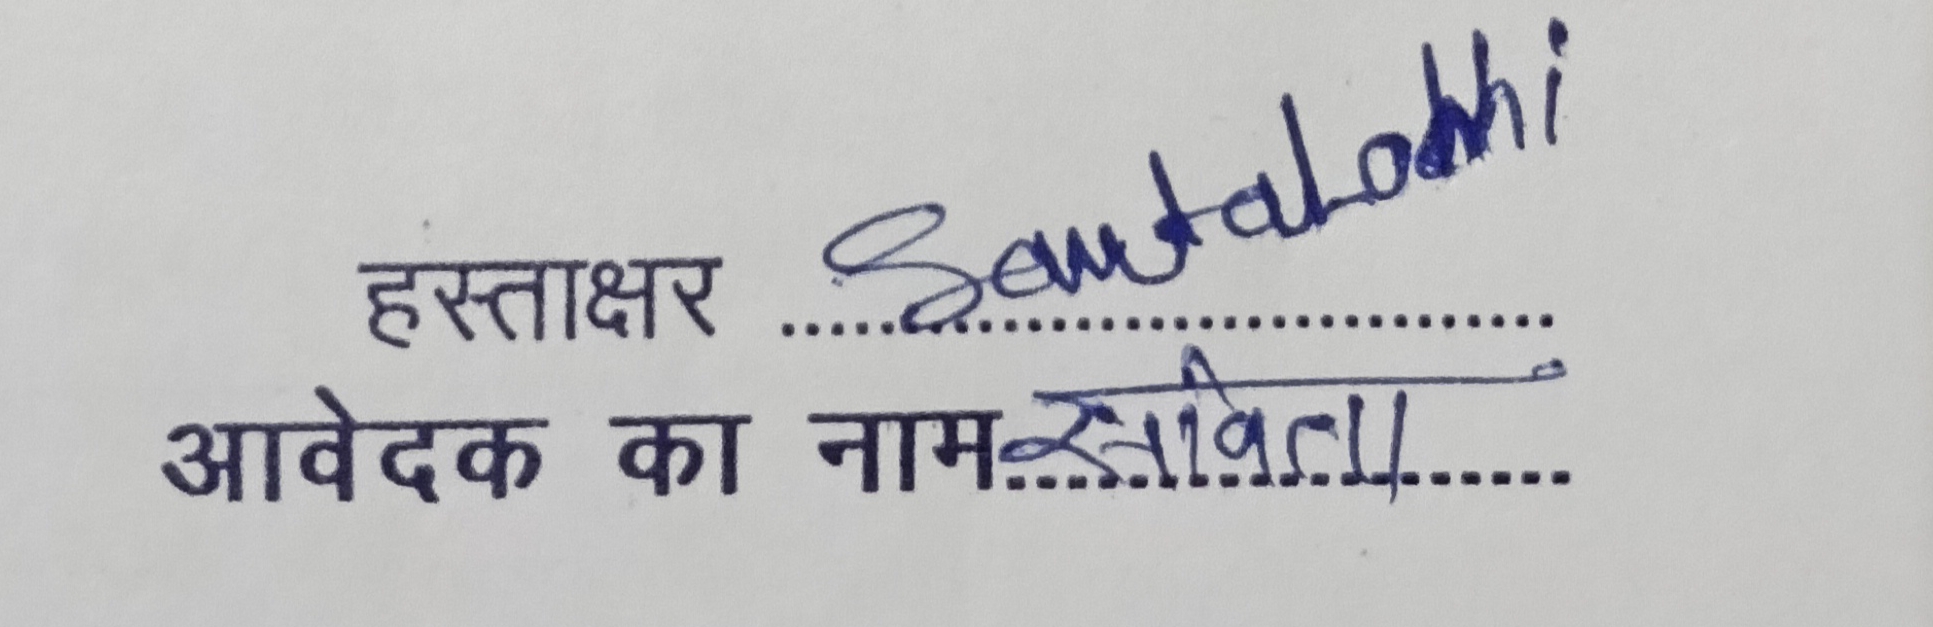 हस्ताक्षर ........ Savita Lodhi
आवेदक का नाम ........ सविता